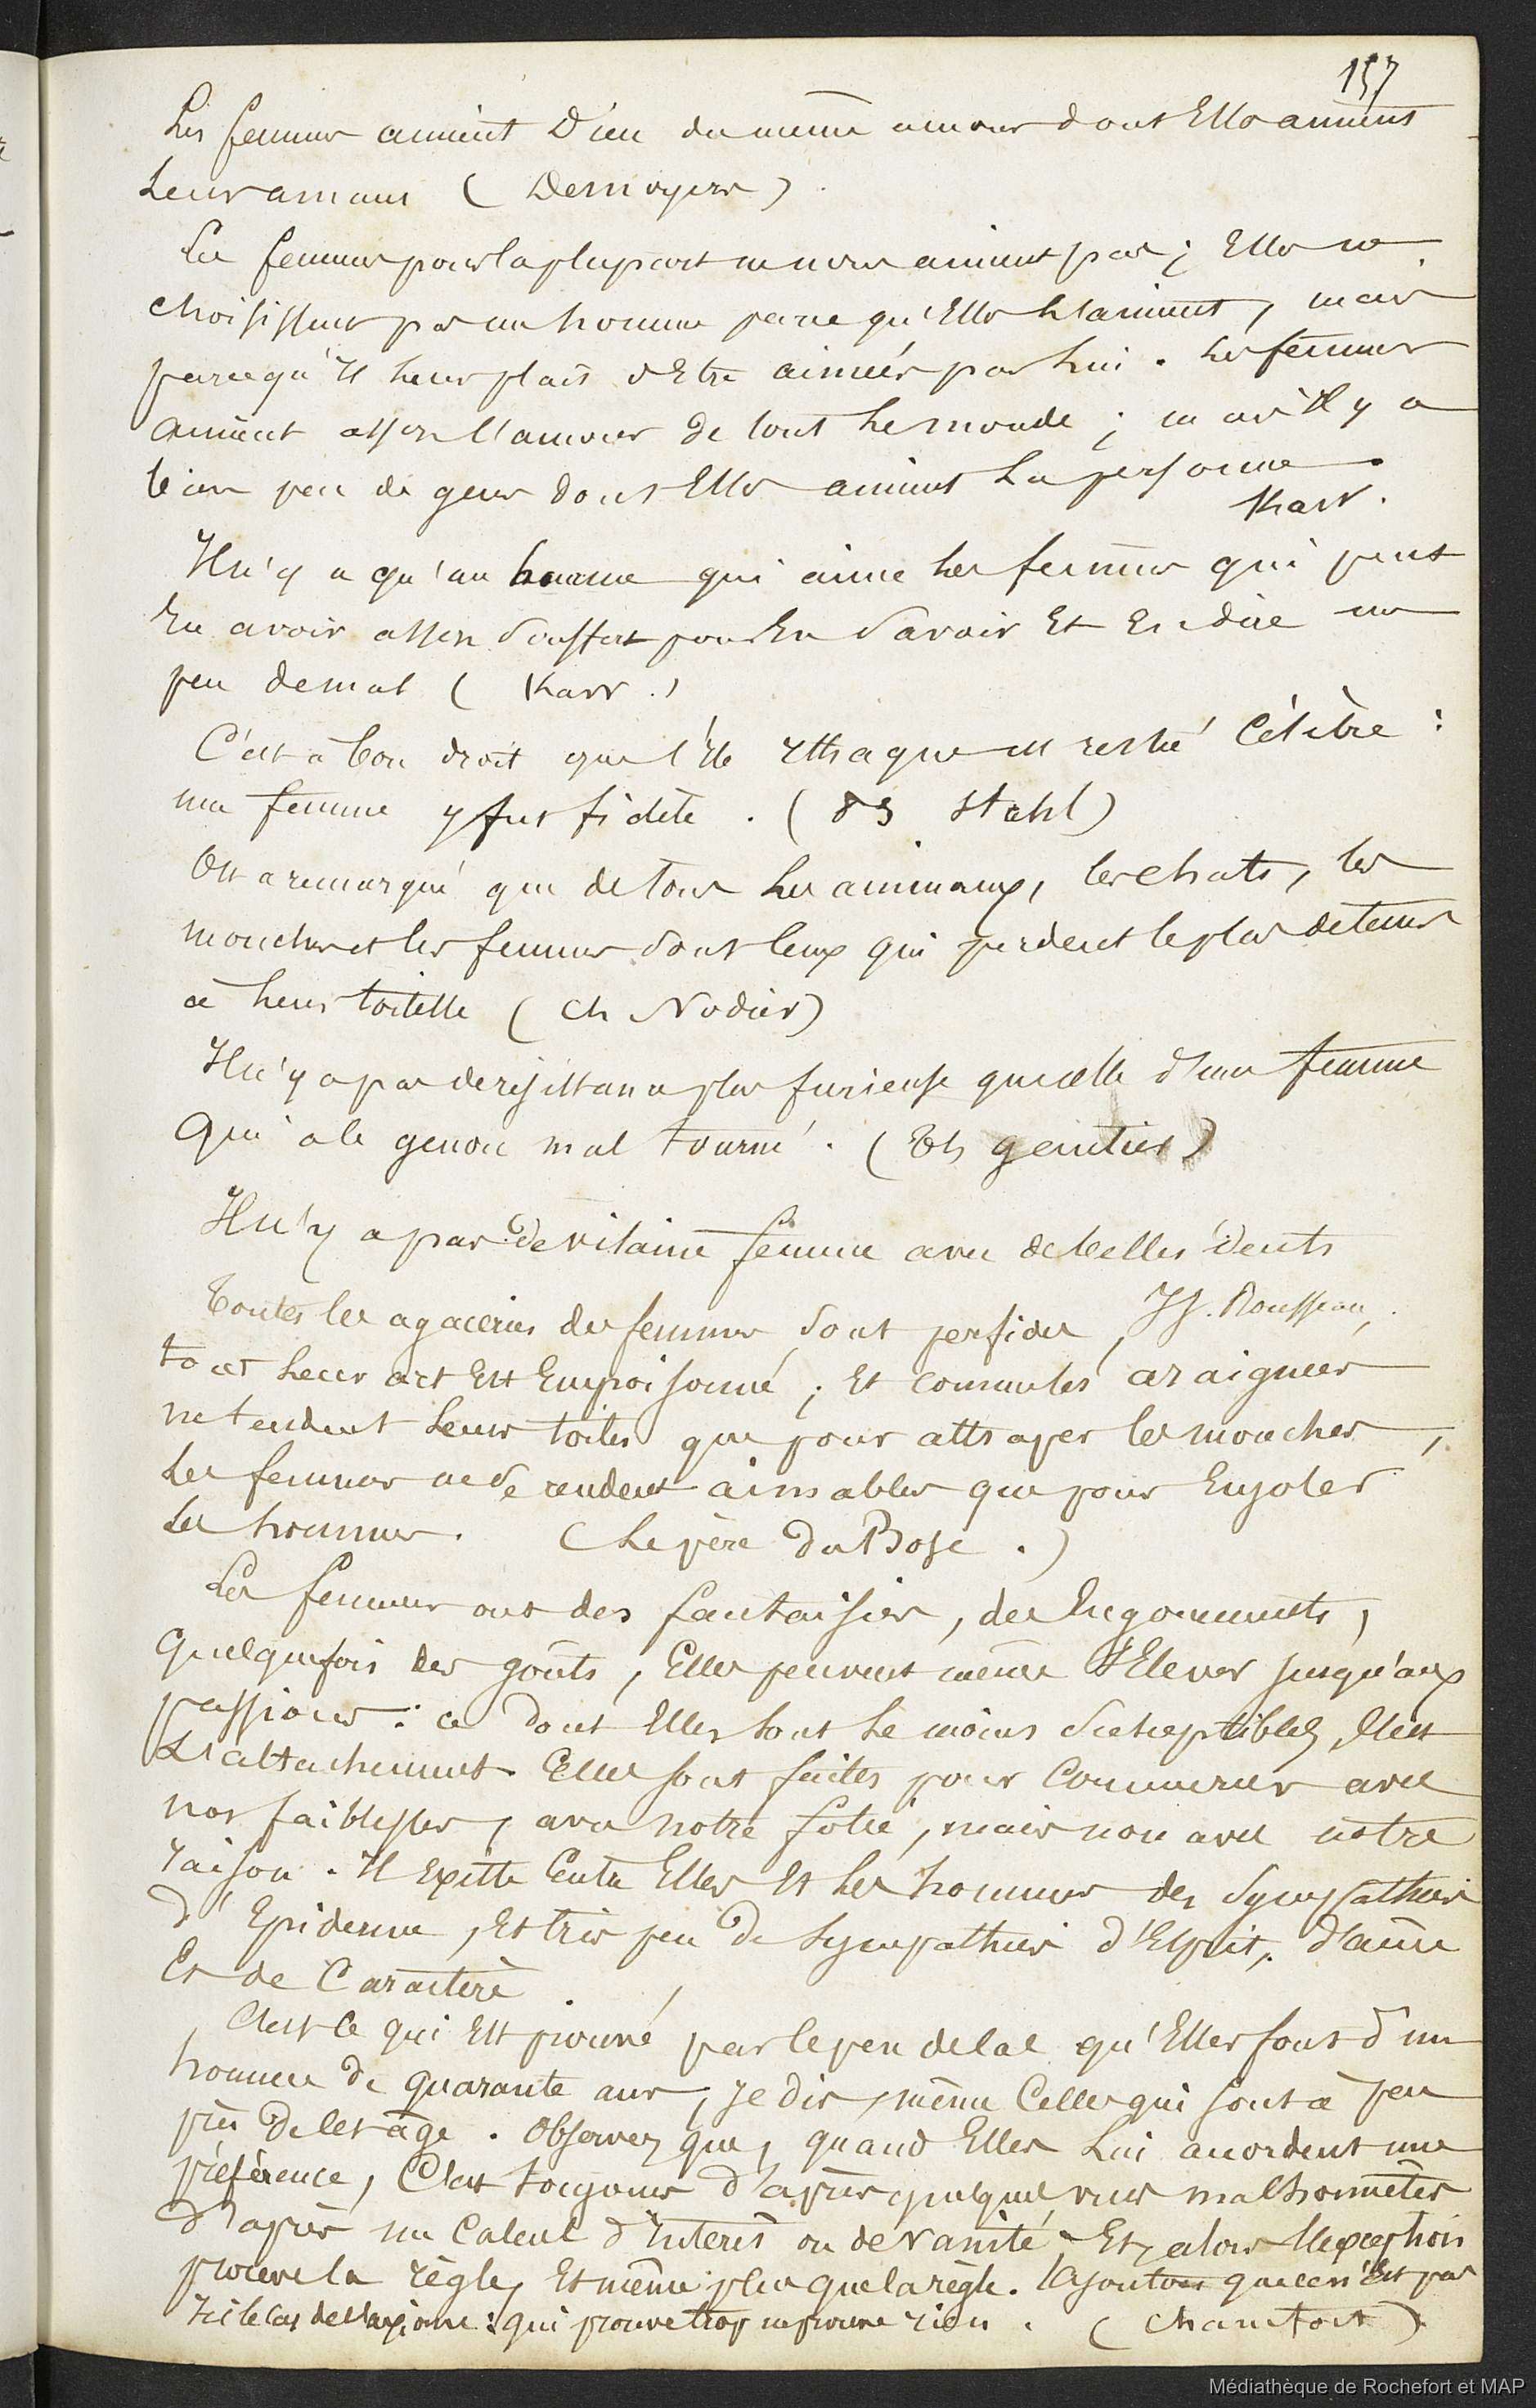 157
Les femmes aiment Dieu du même amour dont Elles aiment
leurs amans ( Desnoyers )
Les femmes pour la plupart ne nous aiment pas ; Elles ne
choisissent pas un homme parce qu'Elles l'aiment, mais
parcequ'il leur plait d'Etre aimées par lui . Les femmes
aiment assez l'amour de tout le monde ; mais Il y a
bien peu de gens dont Elles aiment la personne .
Karr .
Il n'y a qu'un homme qui aime les femmes qui peut
En avoir assez souffert pour En savoir Et En dire un
peu de mal ( Karr . )
C'est à bon droit que l'île Ithaque est resté Célèbre :
une femme y fut fidèle . ( PJ Stahl )
On a remarqué que de tous les animaux, les chats, les
mouches et les femmes sont ceux qui perdent le plus de tems
à leur toilette ( Ch Nodier )
Il n'y a pas de résistance plus furieuse que celle d'une femme
Qui a le genou mal tourné . ( Th gautier )
Il n'y a pas de vilaine femme avec de belles dents
JJ. Rousseau .
Toutes les agaceries des femmes sont perfides ,
tout leur art Est Empoisonné ; Et comme les araignées
ne tendent leurs toiles que pour attraper les mouches ,
les femmes ne se rendent aimables que pour Enjoler
les hommes . ( Le père Du Bosc . )
Les femmes ont des fantaisies , des Engouements ,
Quelquefois des goûts , Elles peuvent même s'Elever jusqu'aux
passions : ce dont Elles sont le moins susceptibles, C'est
L'attachement . Elles sont faites pour Commercer avec
nos faiblesses , avec notre folie , mais non avec notre
raison . Il Existe Entre Elles Et les hommes des sympathies
d'Epiderme , Et très peu de sympathies d'Esprit, d'âme
Et de Caractère .
C'est ce qui Est prouvé par le peu de cas qu'Elles font d'un
homme de quarante ans , je dis , même Celles qui sont à peu
près de cet âge . Observez que , quand Elles lui accordent une
préférence , C'est toujours d'après quelques vues malhonnêtes
d'après un Calcul d'Interêt ou de vanité , Et, alors l'exception
prouve la règle, Et même plus que la règle . Ajoutons que ce n'Est pas
Ici le cas de l'axiome : qui prouve trop ne prouve rien . ( Chamfort )
Médiathèque de Rochefort et MAP